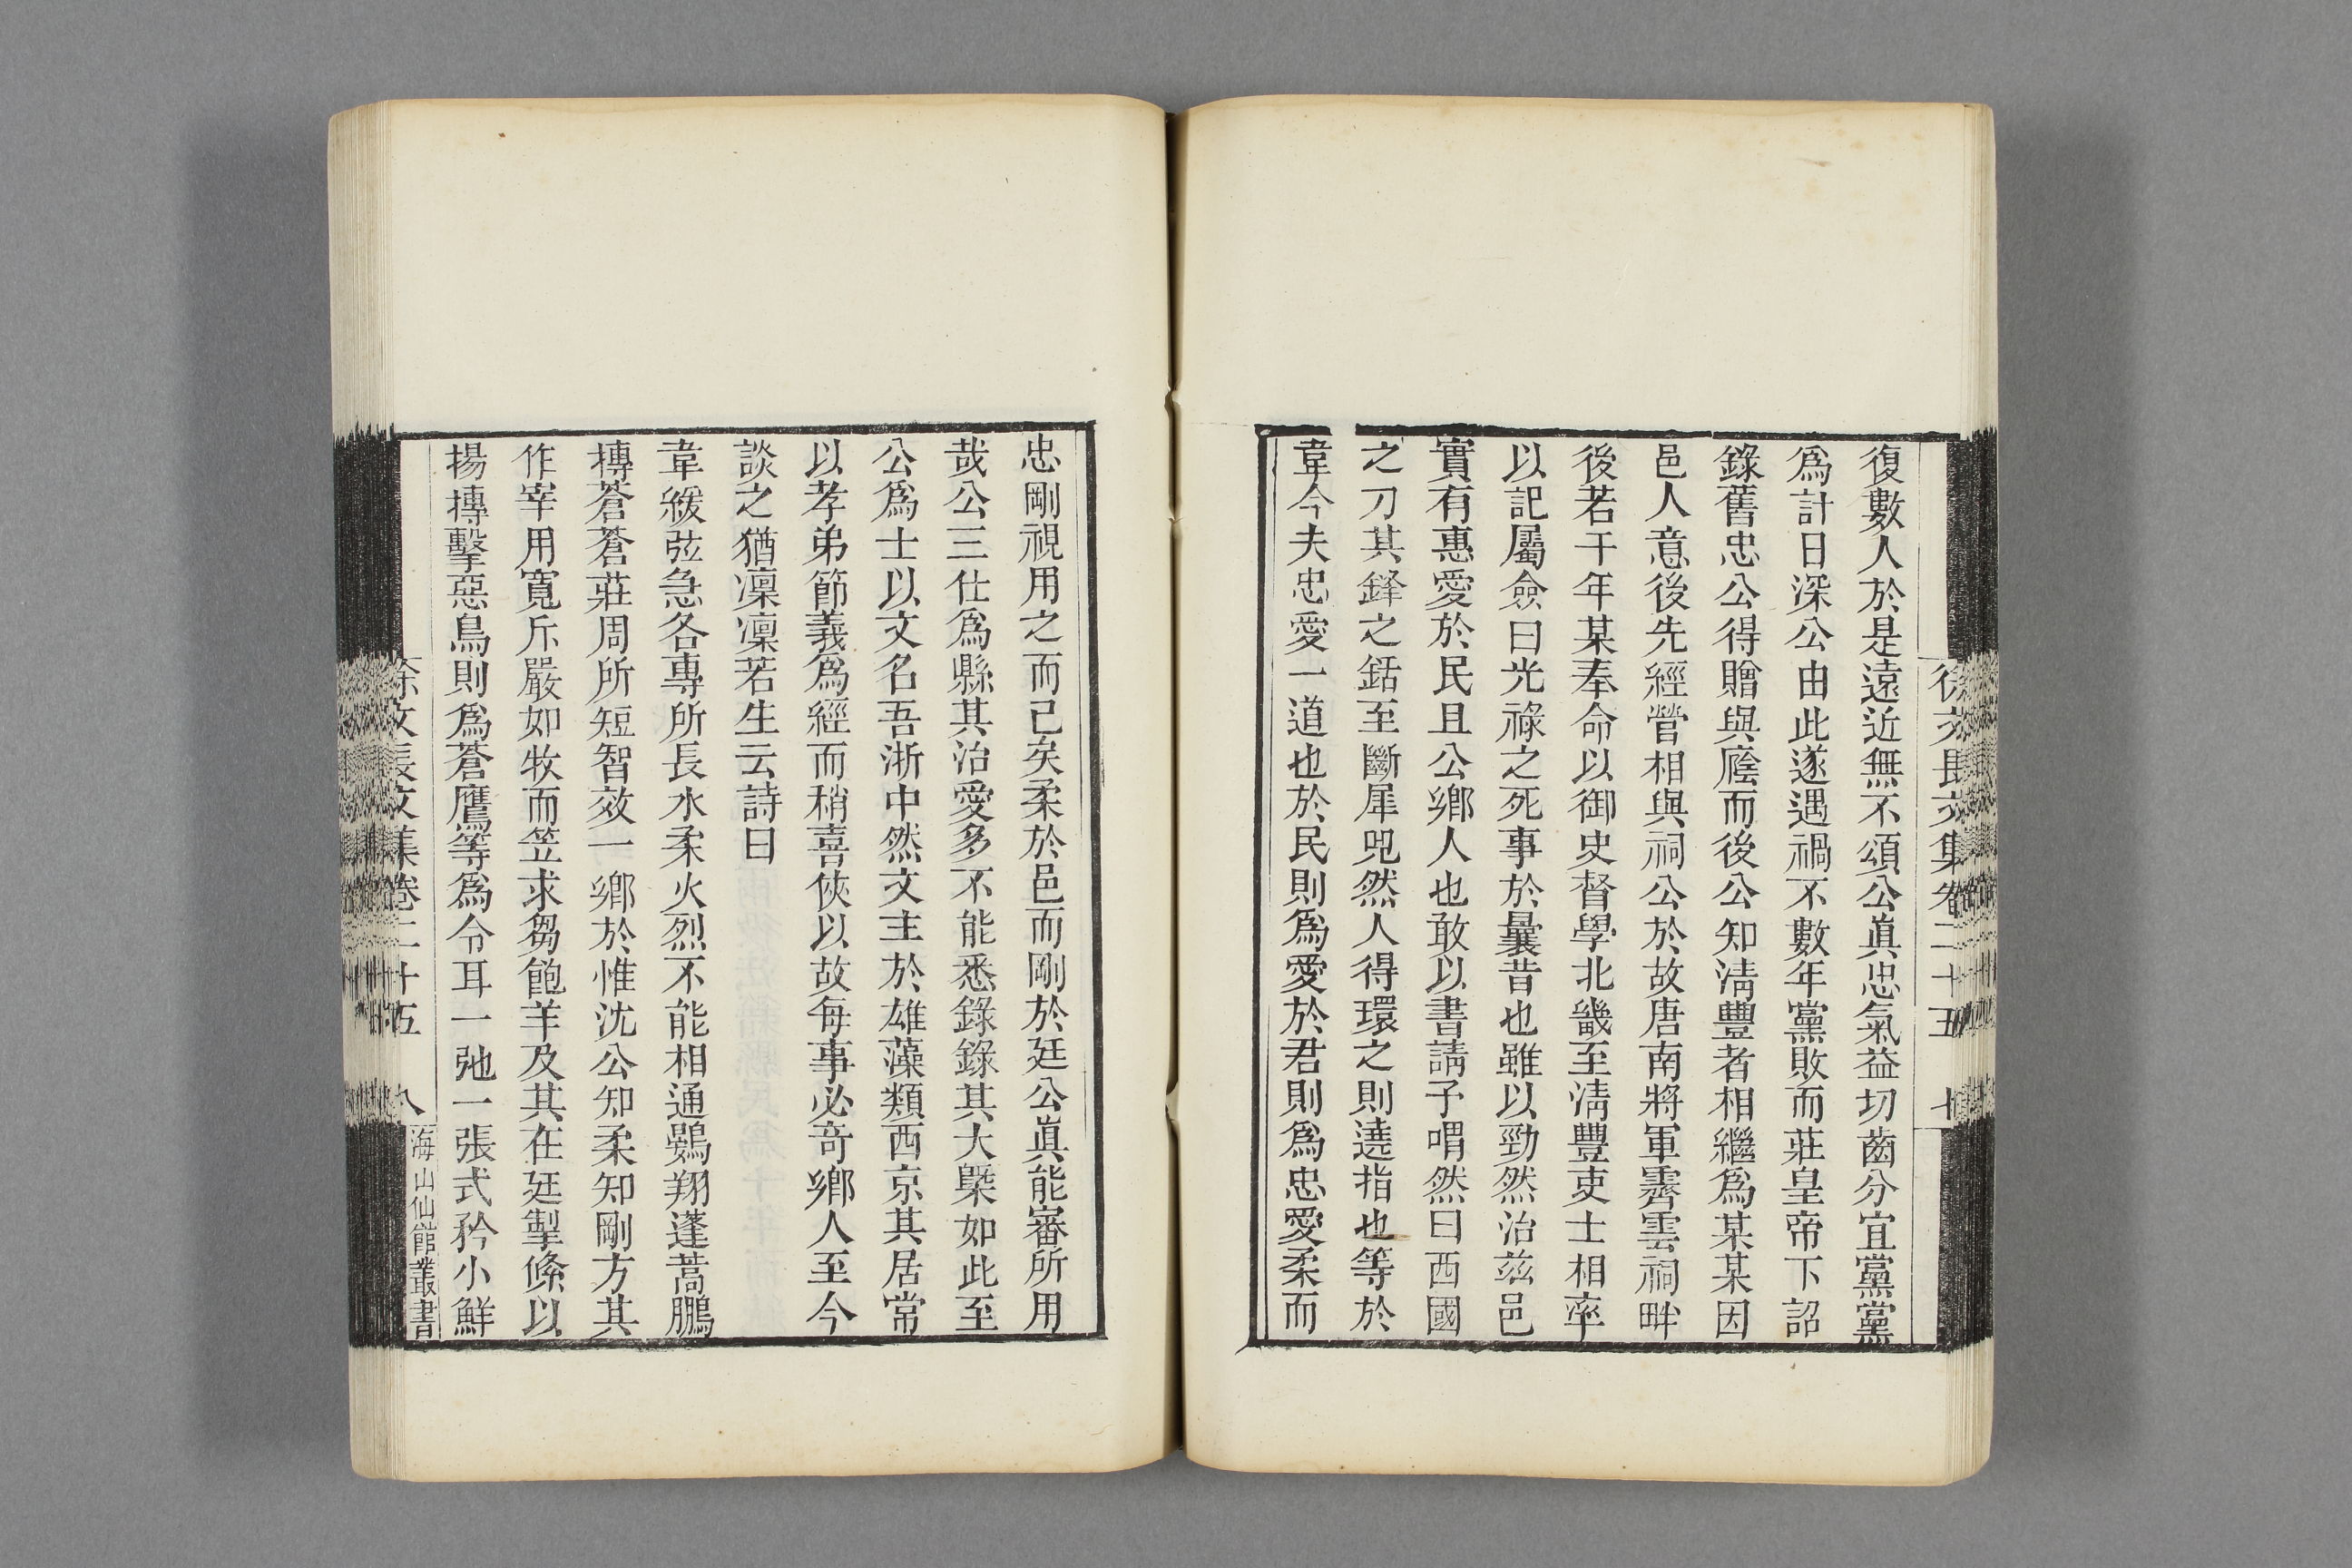 徐文長文集卷二十五 七
復數人於是遠近無不頌公眞忠氣益切齒分宜黨黨
爲計日深公由此遂遇禍不數年黨敗而莊皇帝下詔
錄舊忠公得贈與廕而後公知淸豐者相繼爲某某因
邑人意後先經營相與祠公於故唐南將軍霽雲祠畔
後若干年某奉命以御史督學北畿至淸豐吏士相率
以記屬僉曰光祿之死事於曩昔也雖以勁然治茲邑
實有惠愛於民且公鄉人也敢以書請予喟然曰西國
之刀其鋒之銛至斷犀兕然人得環之則遶指也等於
韋今夫忠愛一道也於民則爲愛於君則爲忠愛柔而
忠剛視用之而已矣柔於邑而剛於廷公眞能審所用
哉公三仕爲縣其治愛多不能悉錄錄其大槩如此至
公爲士以文名吾浙中然文主於雄藻類西京其居常
以孝弟節義爲經而稍喜俠以故每事必奇鄉人至今
談之猶凜凜若生云詩曰
韋緩弦急各專所長水柔火烈不能相通鷃翔蓬蒿鵬
摶蒼蒼莊周所短智效一鄉於惟沈公知柔知剛方其
作宰用寬斥嚴如牧而笠求芻飽羊及其在廷掣絛以
揚摶擊惡鳥則爲蒼鷹等爲令耳一弛一張式矜小鮮
徐文長文集卷二十五 八 海山仙館叢書